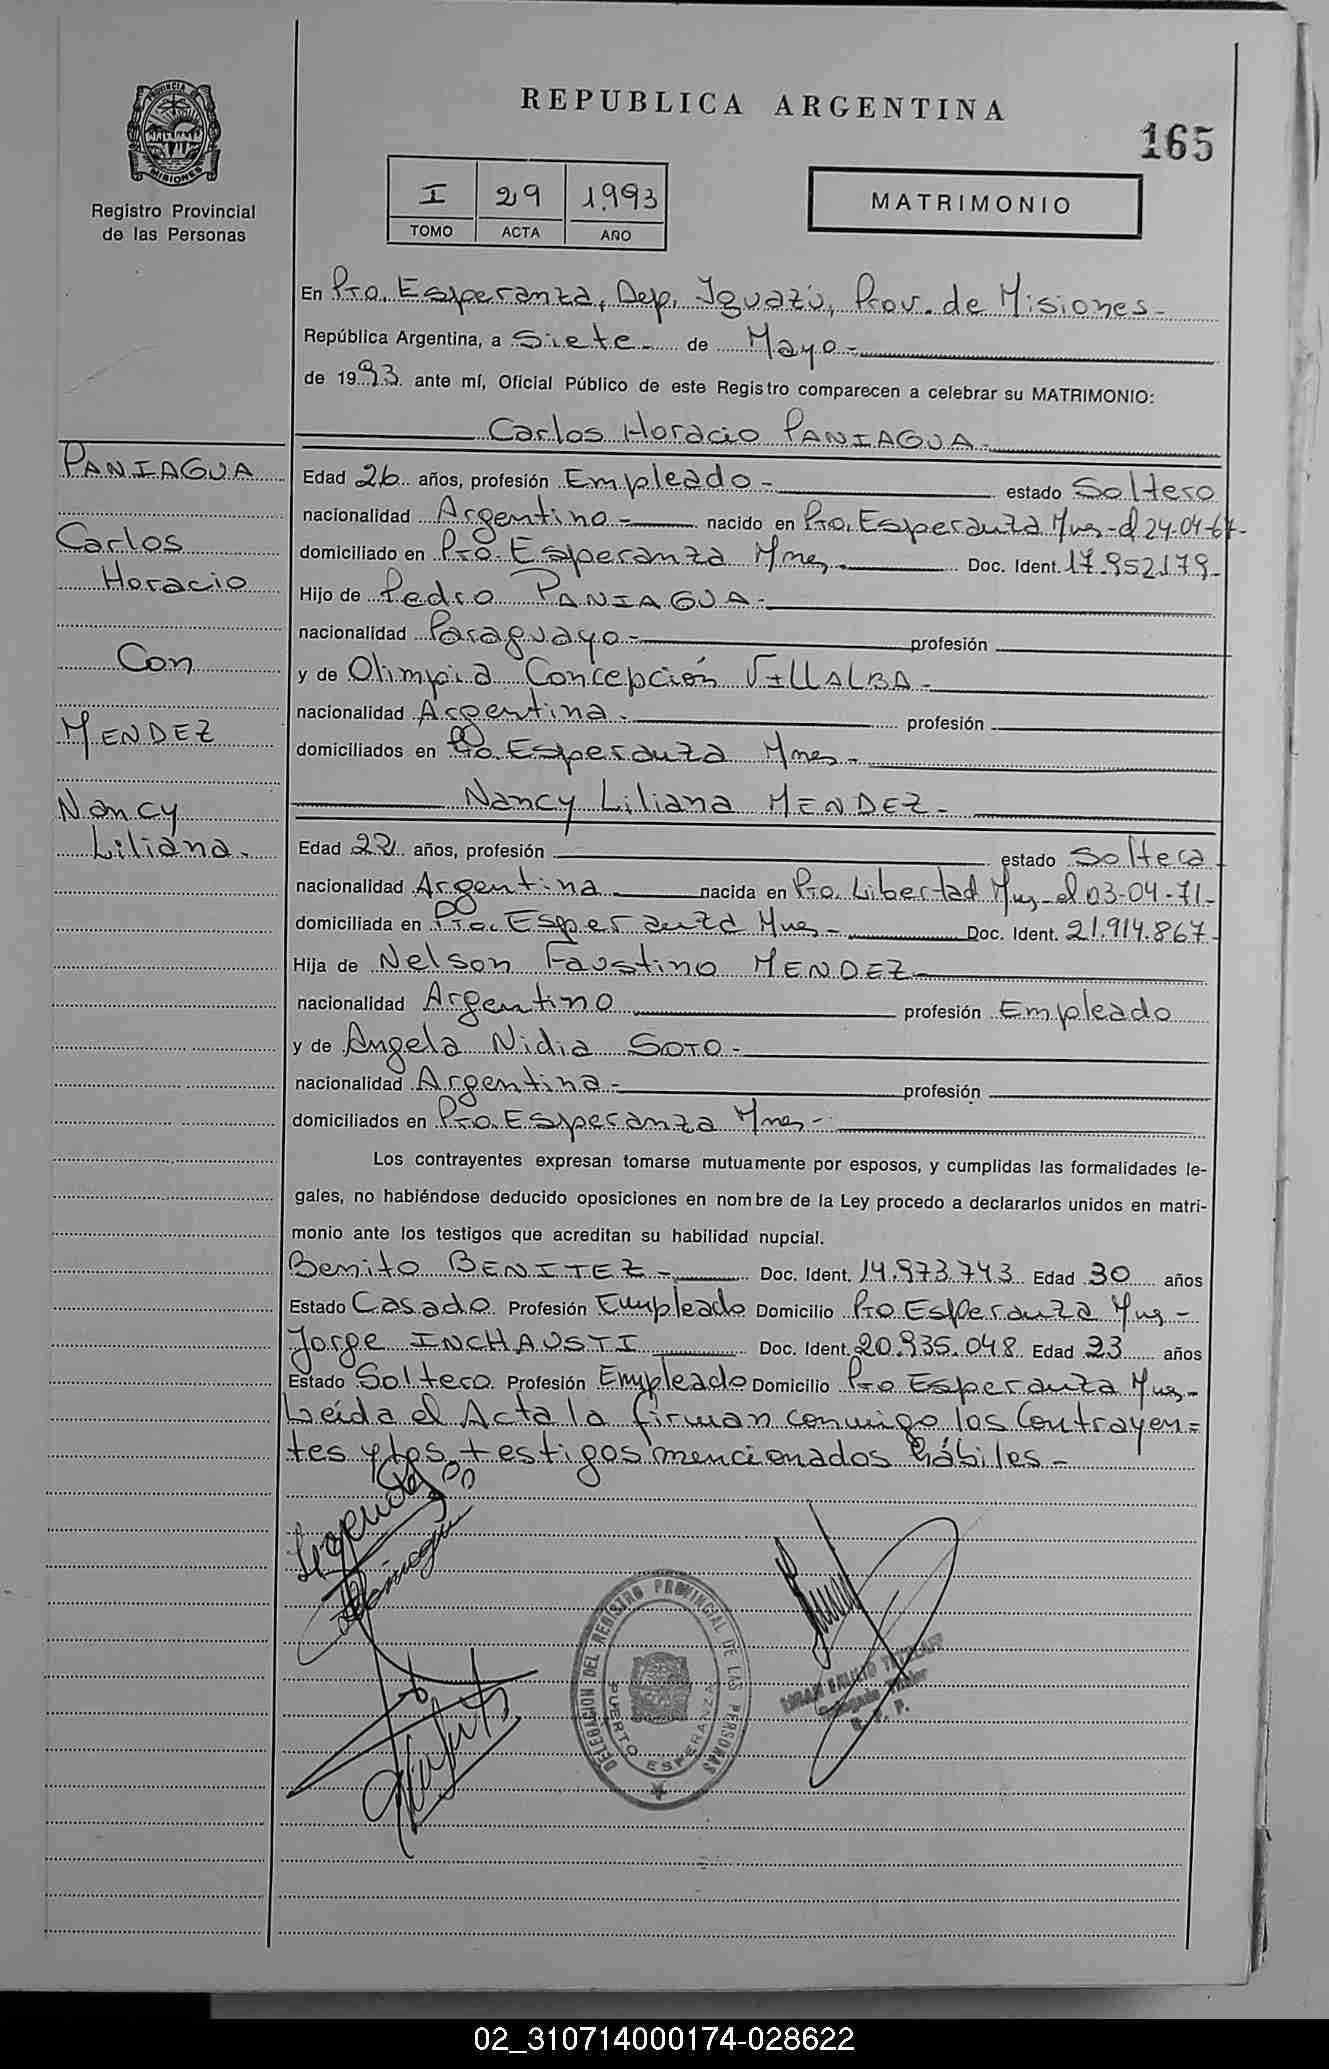 REPUBLICA ARGENTINA
165
PROVINCIA DE
MISIONES
Registro Provincial
de las Personas
I 29 1993
TOMO ACTA AÑO
MATRIMONIO
En Pto. Esperanza, Dep. Iguazú, Prov. de Misiones-
República Argentina, a Siete- de Mayo-
de 1993 ante mí, Oficial Público de este Registro comparecen a celebrar su MATRIMONIO:
Carlos Horacio PANIAGUA-
PANIAGUA
Carlos
Horacio
Con
MENDEZ
Nancy
Liliana.
Edad 26 años, profesión Empleado- estado Soltero
nacionalidad Argentino- nacido en Pto. Esperanza Mnes-el 24-04-67-
domiciliado en Pto. Esperanza Mnes- Doc. Ident. 17.952.179-
Hijo de Pedro PANIAGUA-
nacionalidad Paraguayo- profesión
y de Olimpia Concepción VILLALBA-
nacionalidad Argentina. profesión
domiciliados en Pto. Esperanza Mnes-
Nancy Liliana MENDEZ-
Edad 22 años, profesión estado Soltera
nacionalidad Argentina nacida en Pto. Libertad Mnes-el 03-04-71-
domiciliada en Pto. Esperanza Mnes- Doc. Ident. 21.914.867-
Hija de Nelson Faustino MENDEZ
nacionalidad Argentino profesión Empleado
y de Angela Nidia SOTO-
nacionalidad Argentina- profesión
domiciliados en Pto. Esperanza Mnes-
Los contrayentes expresan tomarse mutuamente por esposos, y cumplidas las formalidades le-
gales, no habiéndose deducido oposiciones en nombre de la Ley procedo a declararlos unidos en matri-
monio ante los testigos que acreditan su habilidad nupcial.
Benito BENITEZ- Doc. Ident. 14.973.743 Edad 30 años
Estado Casado Profesión Empleado Domicilio Pto Esperanza Mnes-
Jorge INCHAUSTI Doc. Ident. 20.935.048 Edad 23 años
Estado Soltero Profesión Empleado Domicilio Pto Esperanza Mnes-
Leída el Acta la firman conmigo los Contrayen=
tes y los testigos mencionados hábiles-
DELEGACION DEL REGISTRO PROVINCIAL DE LAS PERSONAS
PUERTO ESPERANZA
02_310714000174-028622